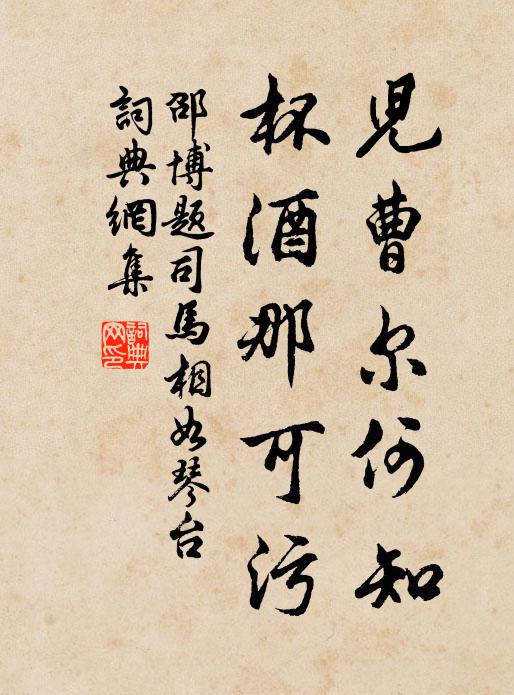 児曹尔何知
杯酒那可污
邵博题司馬相如琴台
詞典網集
詞典网印